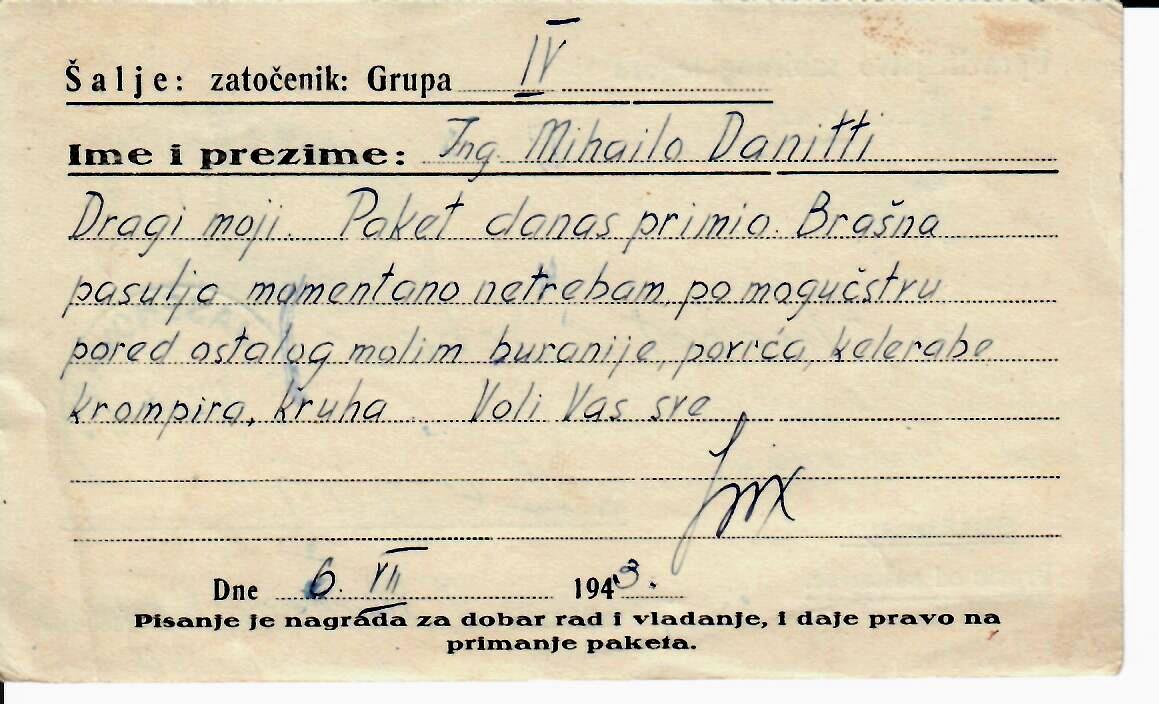 Šalje: zatočenik: Grupa IV
Ime i prezime: Ing. Mihailo Danitti
Dragi moji. Paket danas primio. Brašna
pasulja momentano netrebam, po mogučstvu
pored ostalog molim buranije, povrća, kelerabe
krompira, kruha. Voli Vas sve
Dne 6. VII 1943.
Pisanje je nagrada za dobar rad i vladanje, i daje pravo na
primanje paketa.